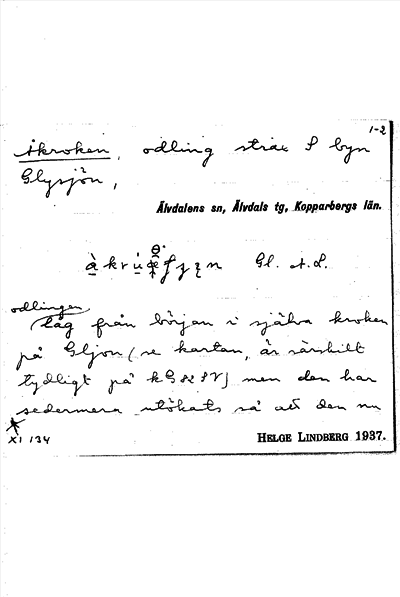 1-2
Åkroken, odling strax S byn
Glysjön,
Älvdalens sn, Älvdals tg, Kopparbergs län.
Gl. A. L.
odlingen
låg från början i själva kroken
på Gljon (se kartan, är särskilt
tydligt på kG 82 SV) men den har
sedermera utökats så att den nu
XI 134
HELGE LINDBERG 1937.